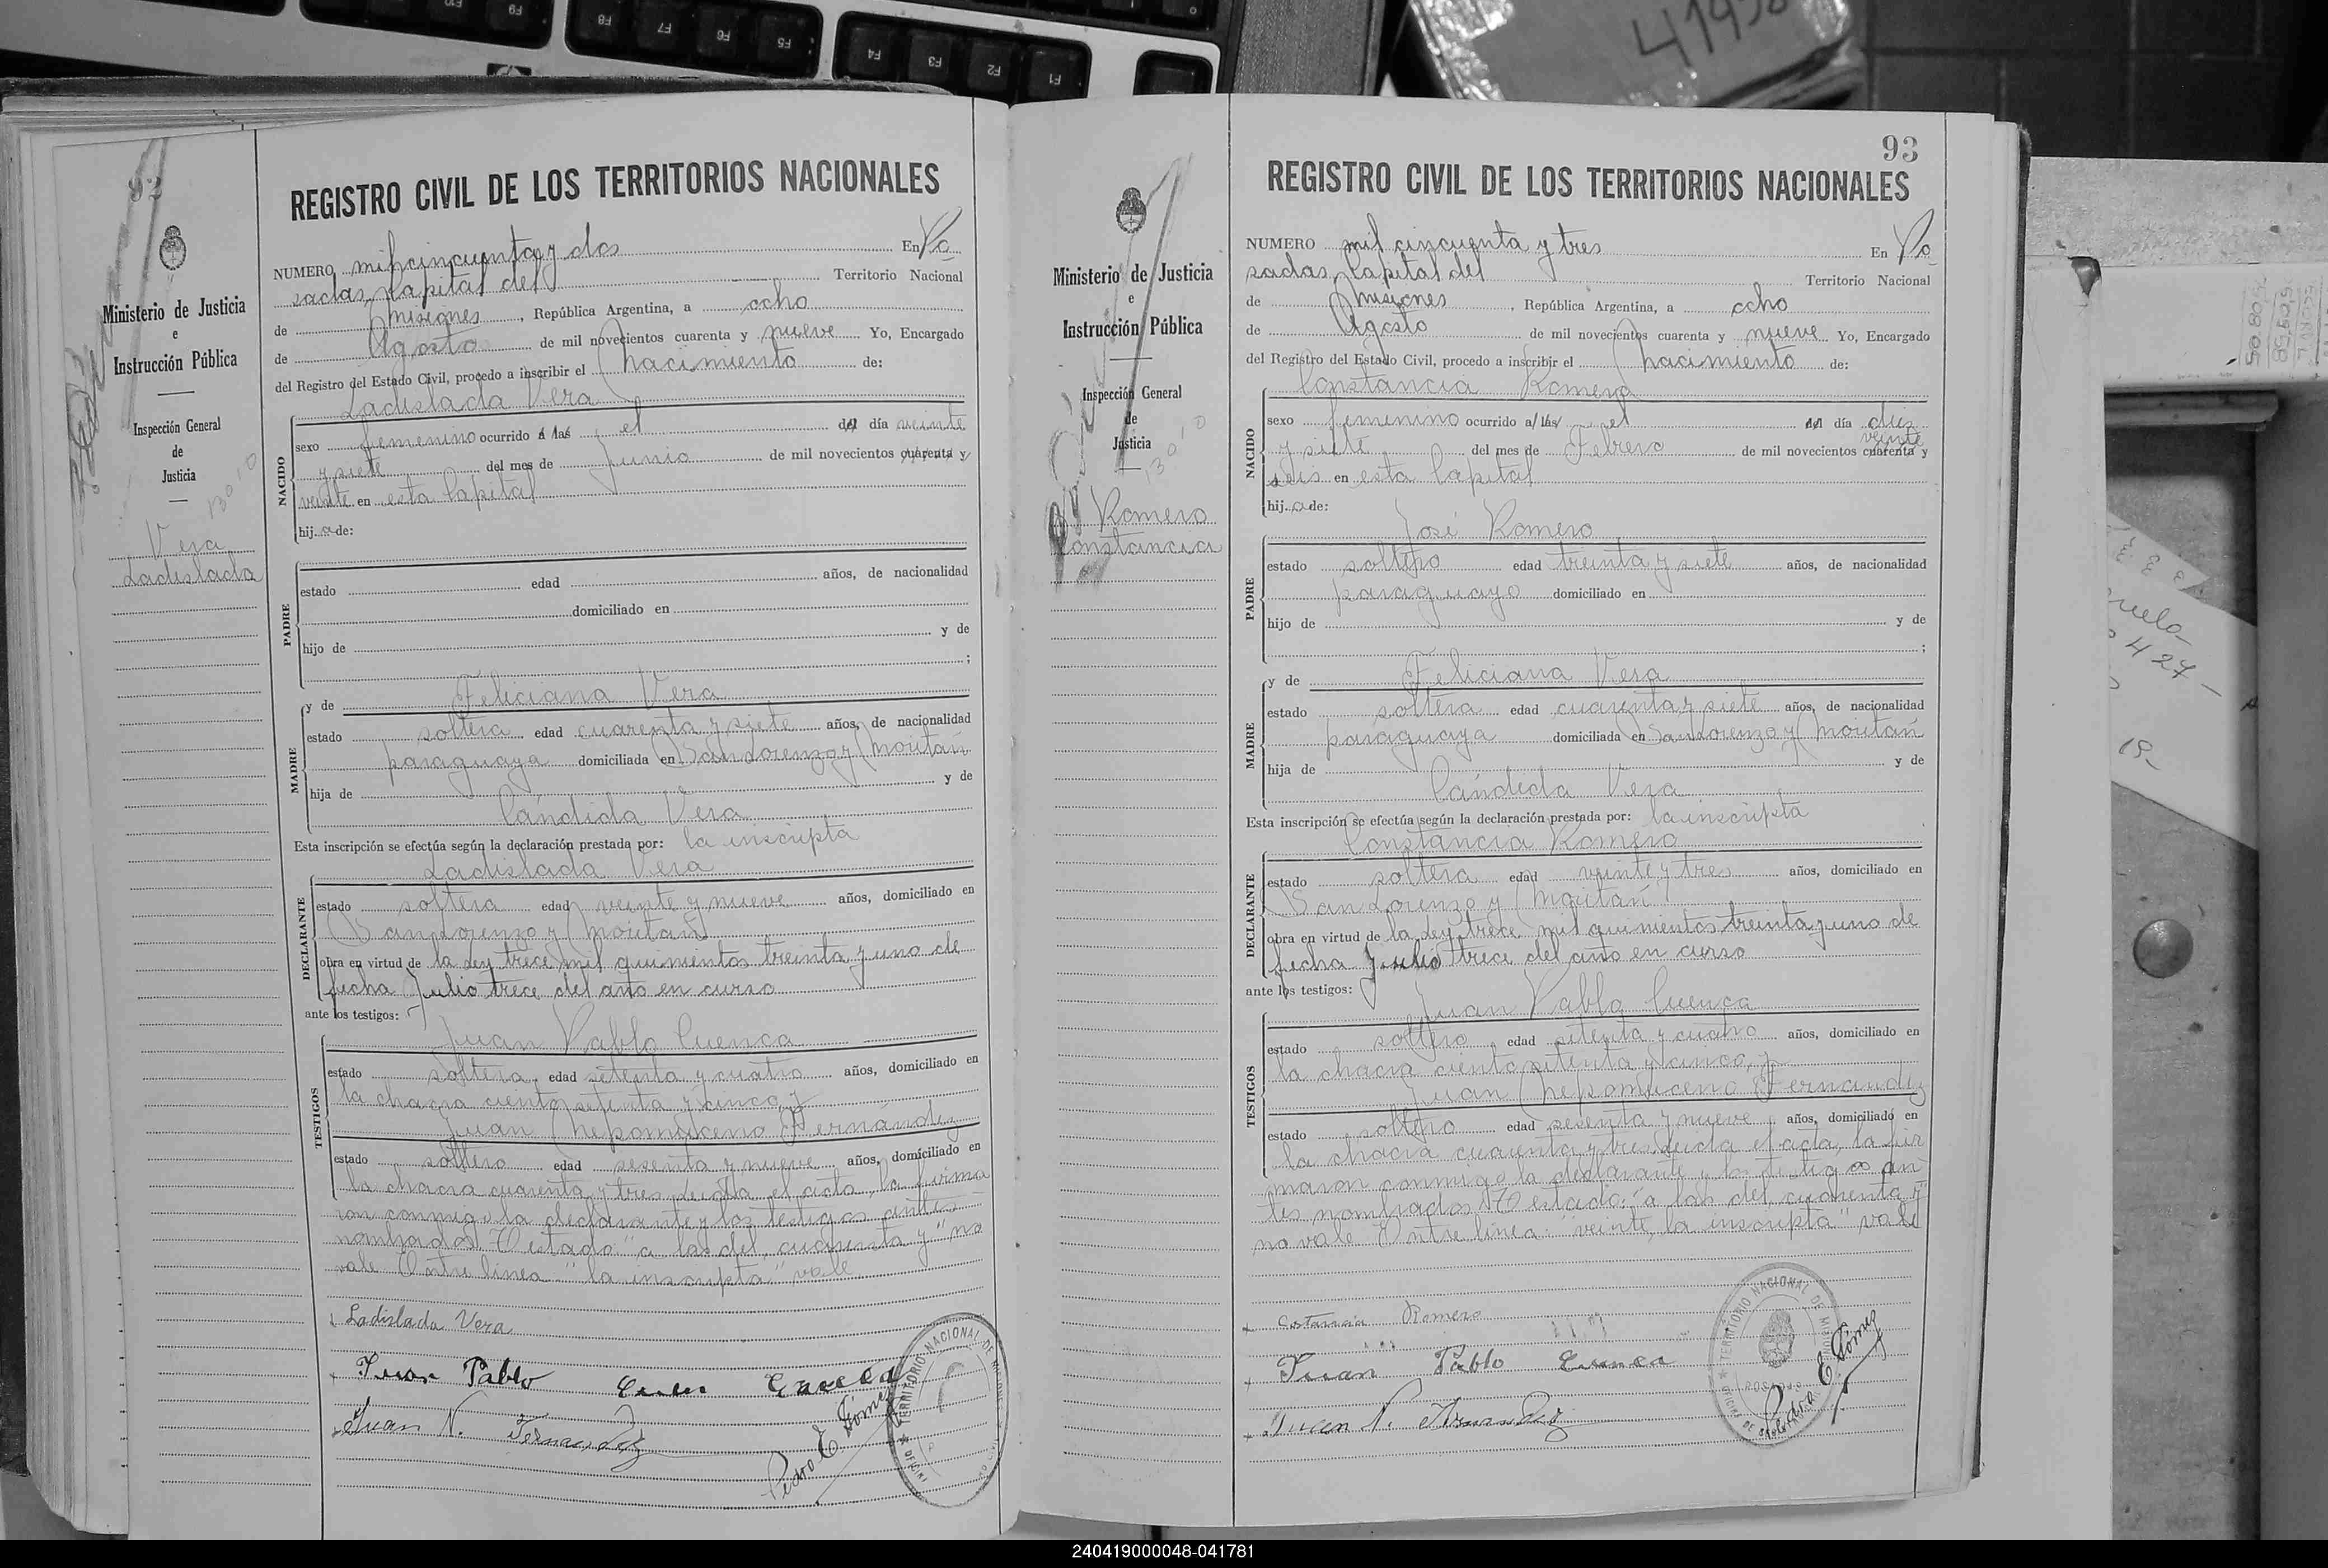 F10
F9
F8
F7
F6
F5
F4
F3
F2
F1
92
Ministerio de Justicia
e
Instrucción Pública
Inspección General
de
Justicia
Vera
Ladislada
REGISTRO CIVIL DE LOS TERRITORIOS NACIONALES
NUMERO mil cincuenta y dos En Po
sadas, Capital del Territorio Nacional
de Misiones, República Argentina, a ocho
de Agosto de mil novecientos cuarenta y nueve Yo, Encargado
del Registro del Estado Civil, procedo a inscribir el nacimiento de:
Ladislada Vera
NACIDO
sexo femenino ocurrido a las el del día veinte
y siete del mes de Junio de mil novecientos cuarenta y
veinte en esta Capital
hija de:
PADRE
estado edad años, de nacionalidad
domiciliado en
hijo de y de
;
y de Feliciana Vera
MADRE
estado soltera edad cuarenta y siete años, de nacionalidad
paraguaya domiciliada en San Lorenzo y Moritán
hija de y de
Cándida Vera
Esta inscripción se efectúa según la declaración prestada por: la inscripta
Ladislada Vera
DECLARANTE
estado soltera edad veinte y nueve años, domiciliado en
San Lorenzo y Moritán
obra en virtud de la Ley trece mil quinientos treinta y uno de
fecha Julio trece del año en curso
ante los testigos:
Juan Pablo Cuenca
TESTIGOS
estado soltero edad setenta y cuatro años, domiciliado en
la chacra ciento setenta y cinco, y
Juan Nepomuceno Fernández
estado soltero edad sesenta y nueve años, domiciliado en
la chacra cuarenta y tres. Leida el acta, la firma
ron conmigo la declarante y los testigos antes
nombrados. Testado: "a las del, cuarenta y" no
vale. Entre linea: "la inscripta" vale
Ladislada Vera
Juan Pablo Cuenca
Juan N. Fernandez
Pedro E. Gómez
TERRITORIO NACIONAL DE
93
Ministerio de Justicia
e
Instrucción Pública
Inspección General
de
Justicia
Romero
Constancia
REGISTRO CIVIL DE LOS TERRITORIOS NACIONALES
NUMERO mil cincuenta y tres En Po
sadas, Capital del Territorio Nacional
de Misiones, República Argentina, a ocho
de Agosto de mil novecientos cuarenta y nueve Yo, Encargado
del Registro del Estado Civil, procedo a inscribir el nacimiento de:
Constancia Romero
NACIDO
sexo femenino ocurrido a las el del día diez
y siete del mes de Febrero de mil novecientos cuarenta y
veinte
seis en esta Capital
hija de:
José Romero
PADRE
estado soltero edad treinta y siete años, de nacionalidad
paraguayo domiciliado en
hijo de y de
;
y de Feliciana Vera
MADRE
estado soltera edad cuarenta y siete años, de nacionalidad
paraguaya domiciliada en San Lorenzo y Moritán
hija de y de
Cándida Vera
Esta inscripción se efectúa según la declaración prestada por: la inscripta
Constancia Romero
DECLARANTE
estado soltera edad veinte y tres años, domiciliado en
San Lorenzo y Moritán
obra en virtud de la Ley trece mil quinientos treinta y uno de
fecha Julio trece del año en curso
ante los testigos:
Juan Pablo Cuenca
TESTIGOS
estado soltero edad setenta y cuatro años, domiciliado en
la chacra ciento setenta y cinco, y
Juan Nepomuceno Fernandez
estado soltero edad sesenta y nueve años, domiciliado en
la chacra cuarenta y tres. Leida el acta, la fir
maron conmigo la declarante y los testigos an
tes nombrados. Testado: "a las del, cuarenta y"
no vale. Entre linea: "veinte, la inscripta" vale
Costancia Romero
Juan Pablo Cuenca
Juan N. Fernandez
Pedro E. Gómez
TERRITORIO NACIONAL DE MISIONES
POSADAS
427
19-
240419000048-041781